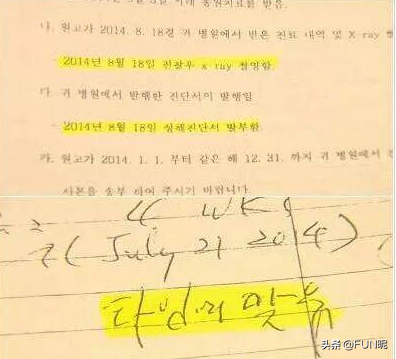 나. 원고가 2014. 8. 18경 귀 병원에서 받은 진료 내역 및 X-ray
- 2014년 8월 18일 진찰후 x ray 촬영함.
다. 귀 병원에서 발행한 진단서의 발행일
- 2014년 8월 18일 상해진단서 발부함.
라. 원고가 2014. 1. 1. 부터 같은 해 12. 31. 까지 귀 병원에서
사본을 송부 하여 주시기 바랍니다.
4 WKS
(July 21 2014)
타인에 맞음
头条 @FUN呢